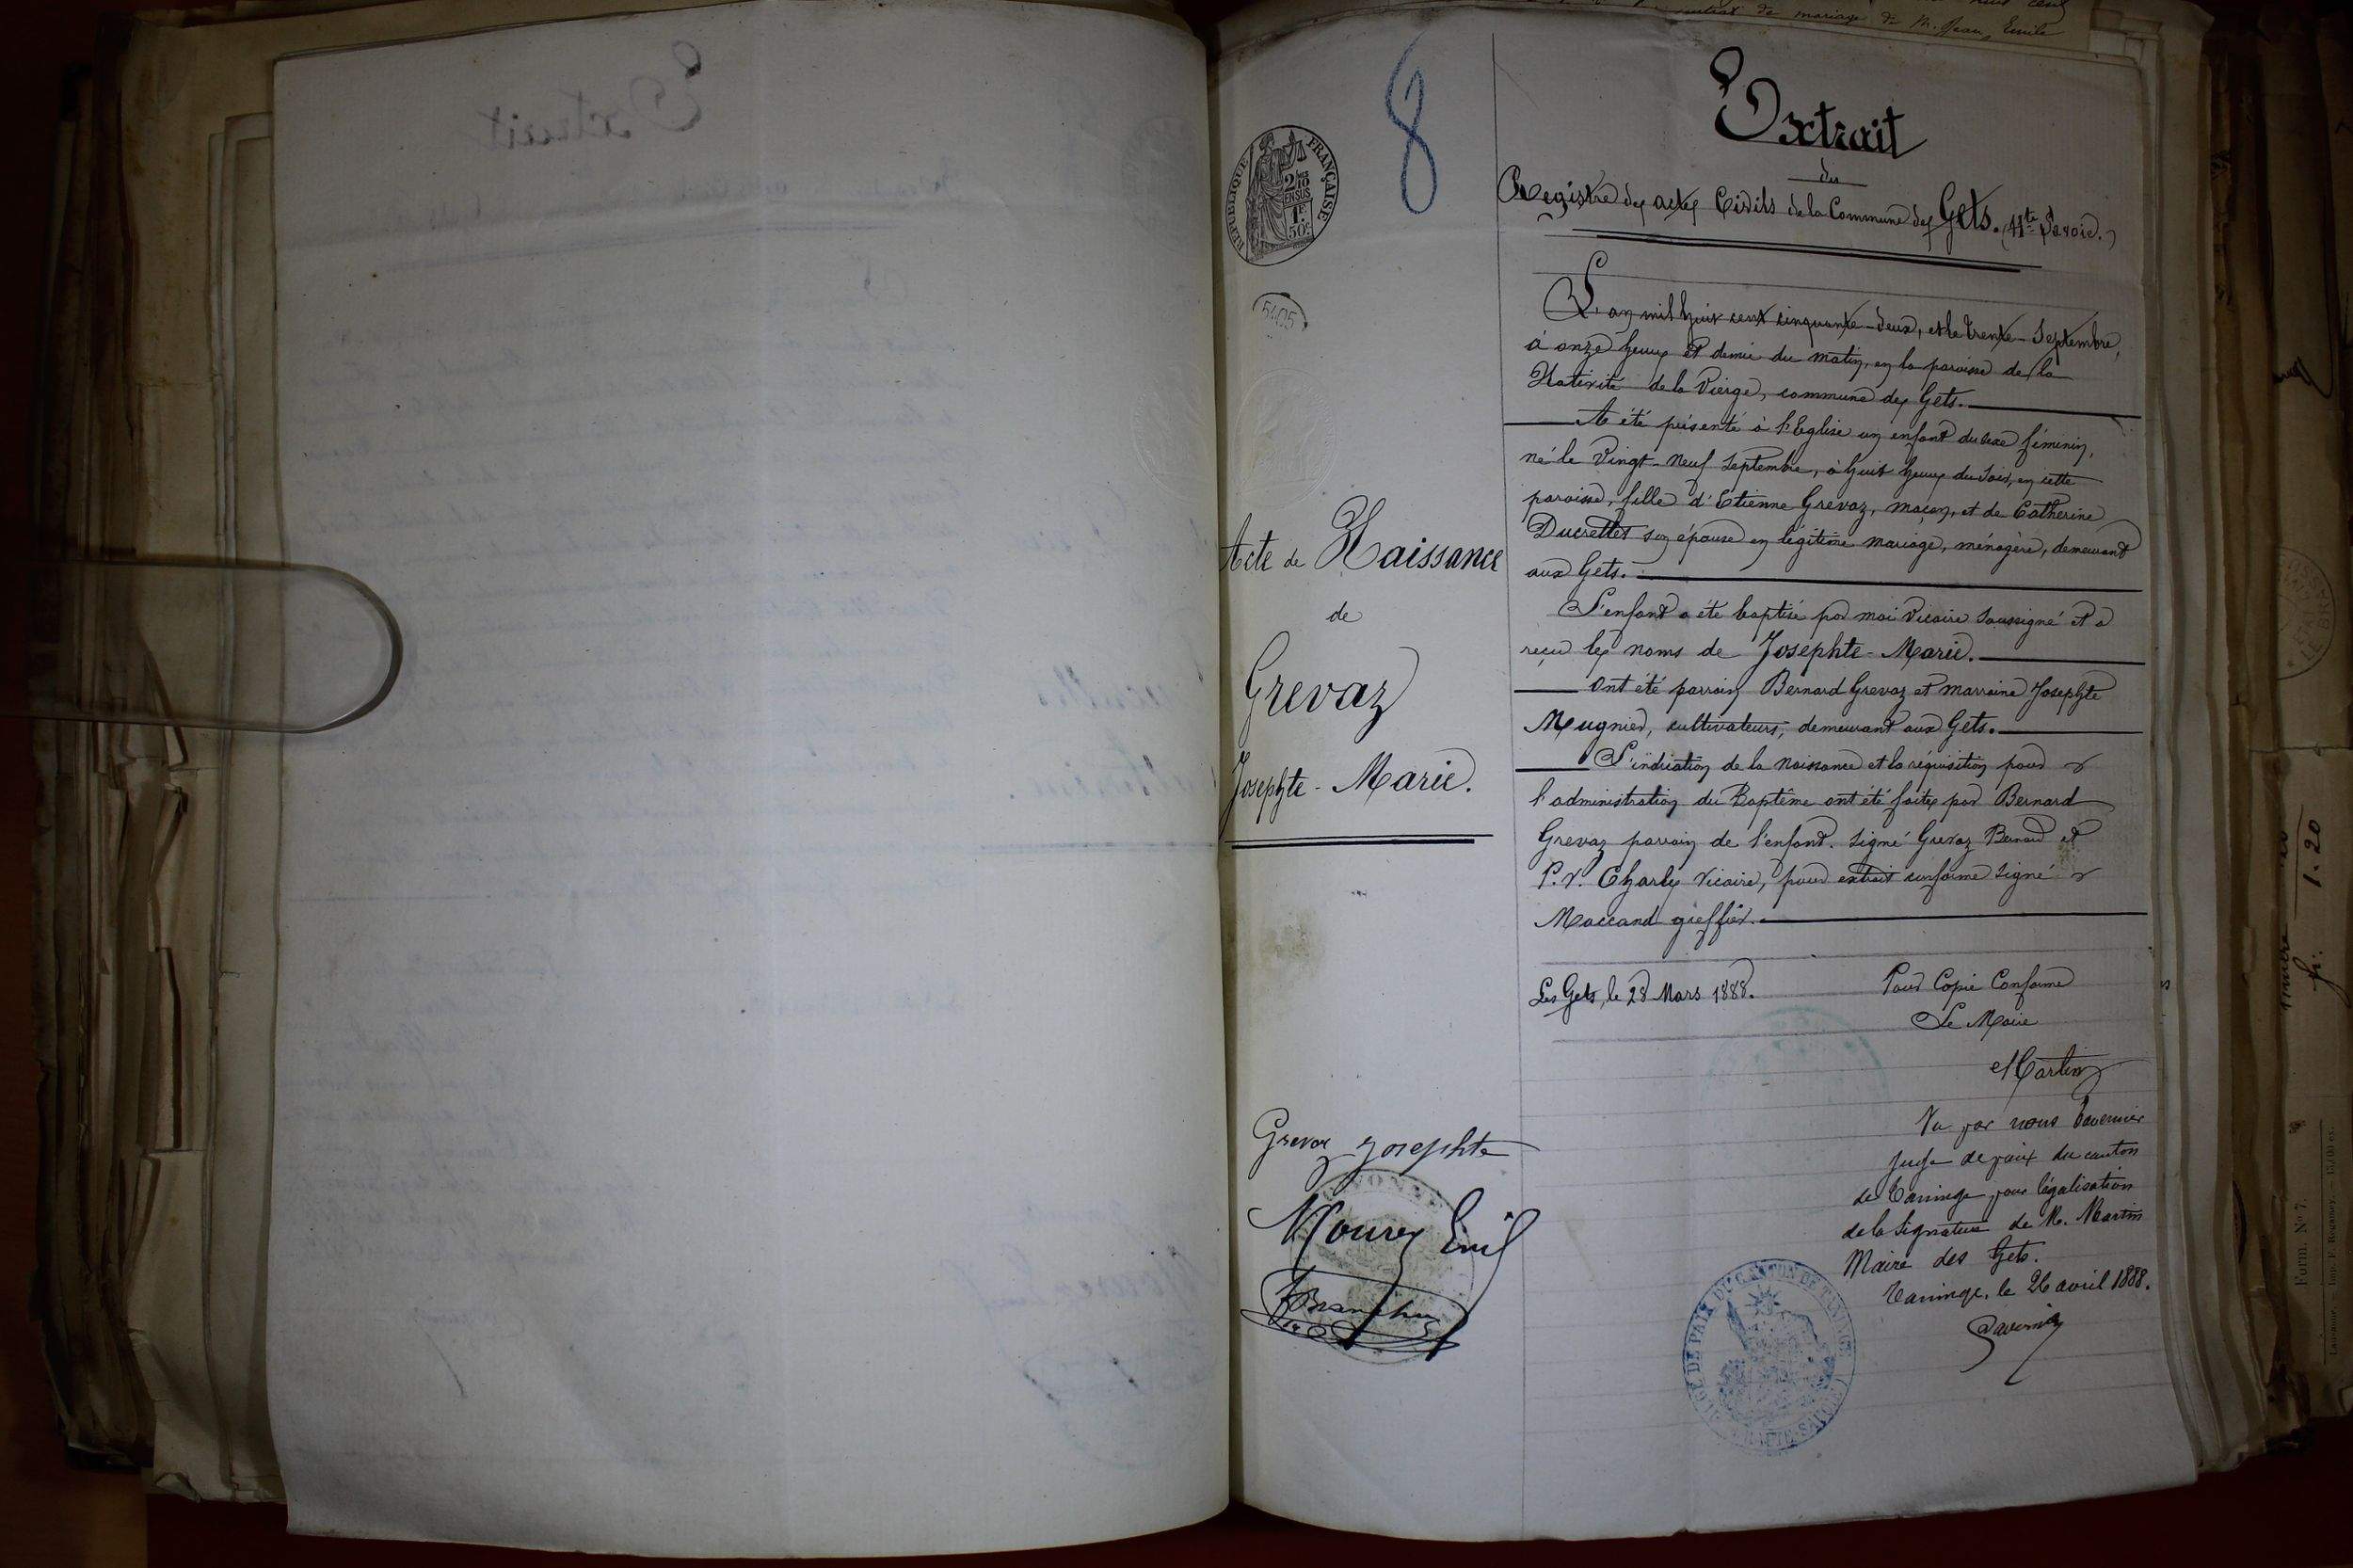 contrat de mariage de M. Jean, Emile
8
REPUBLIQUE FRANÇAISE
2/10 EN SUS
1F 50c
5405
Extrait
du
Registre des actes Civils de la Commune des Gets. (Hte Savoie.)
L'an mil huit cent cinquante-deux, et le trente-Septembre,
à onze heures et demie du matin, en la paroisse de la
Nativité de la Vierge, commune des Gets.
A été présenté à l'Eglise un enfant du sexe féminin,
né le vingt-neuf Septembre, à huit heures du soir, en cette
paroisse, fille d'Etienne Grevaz, maçon, et de Catherine
Ducrettet son épouse en légitime mariage, ménagère, demeurant
aux Gets.
L'enfant a été baptisé par moi Vicaire soussigné et a
reçu les noms de Josephte-Marie.
Ont été parrain Bernard Grevaz et marraine Josephte
Mugnier, cultivateurs, demeurant aux Gets.
L'indication de la naissance et la réquisition pour
l'administration du Baptême ont été faites par Bernard
Grevaz parrain de l'enfant. Signé Grevaz Bernard et
P. V. Charles Vicaire, pour extrait conforme signé
Maccand greffier.
Les Gets, le 28 Mars 1888.
Pour Copie Conforme
Le Maire
Martin
Vu par nous Tavernier
Juge de paix du canton
de Taninge pour légalisation
de la signature de M. Martin
Maire des Gets.
Taninge, le 26 avril 1888.
Tavernier
JUGE DE PAIX DU CANTON DE TANINGES
HAUTE-SAVOIE
Acte de Naissance
de
Grevaz
Josephte-Marie.
Grevaz Josephte
Mourey Emil
fr. 1.20
Form. No 7.